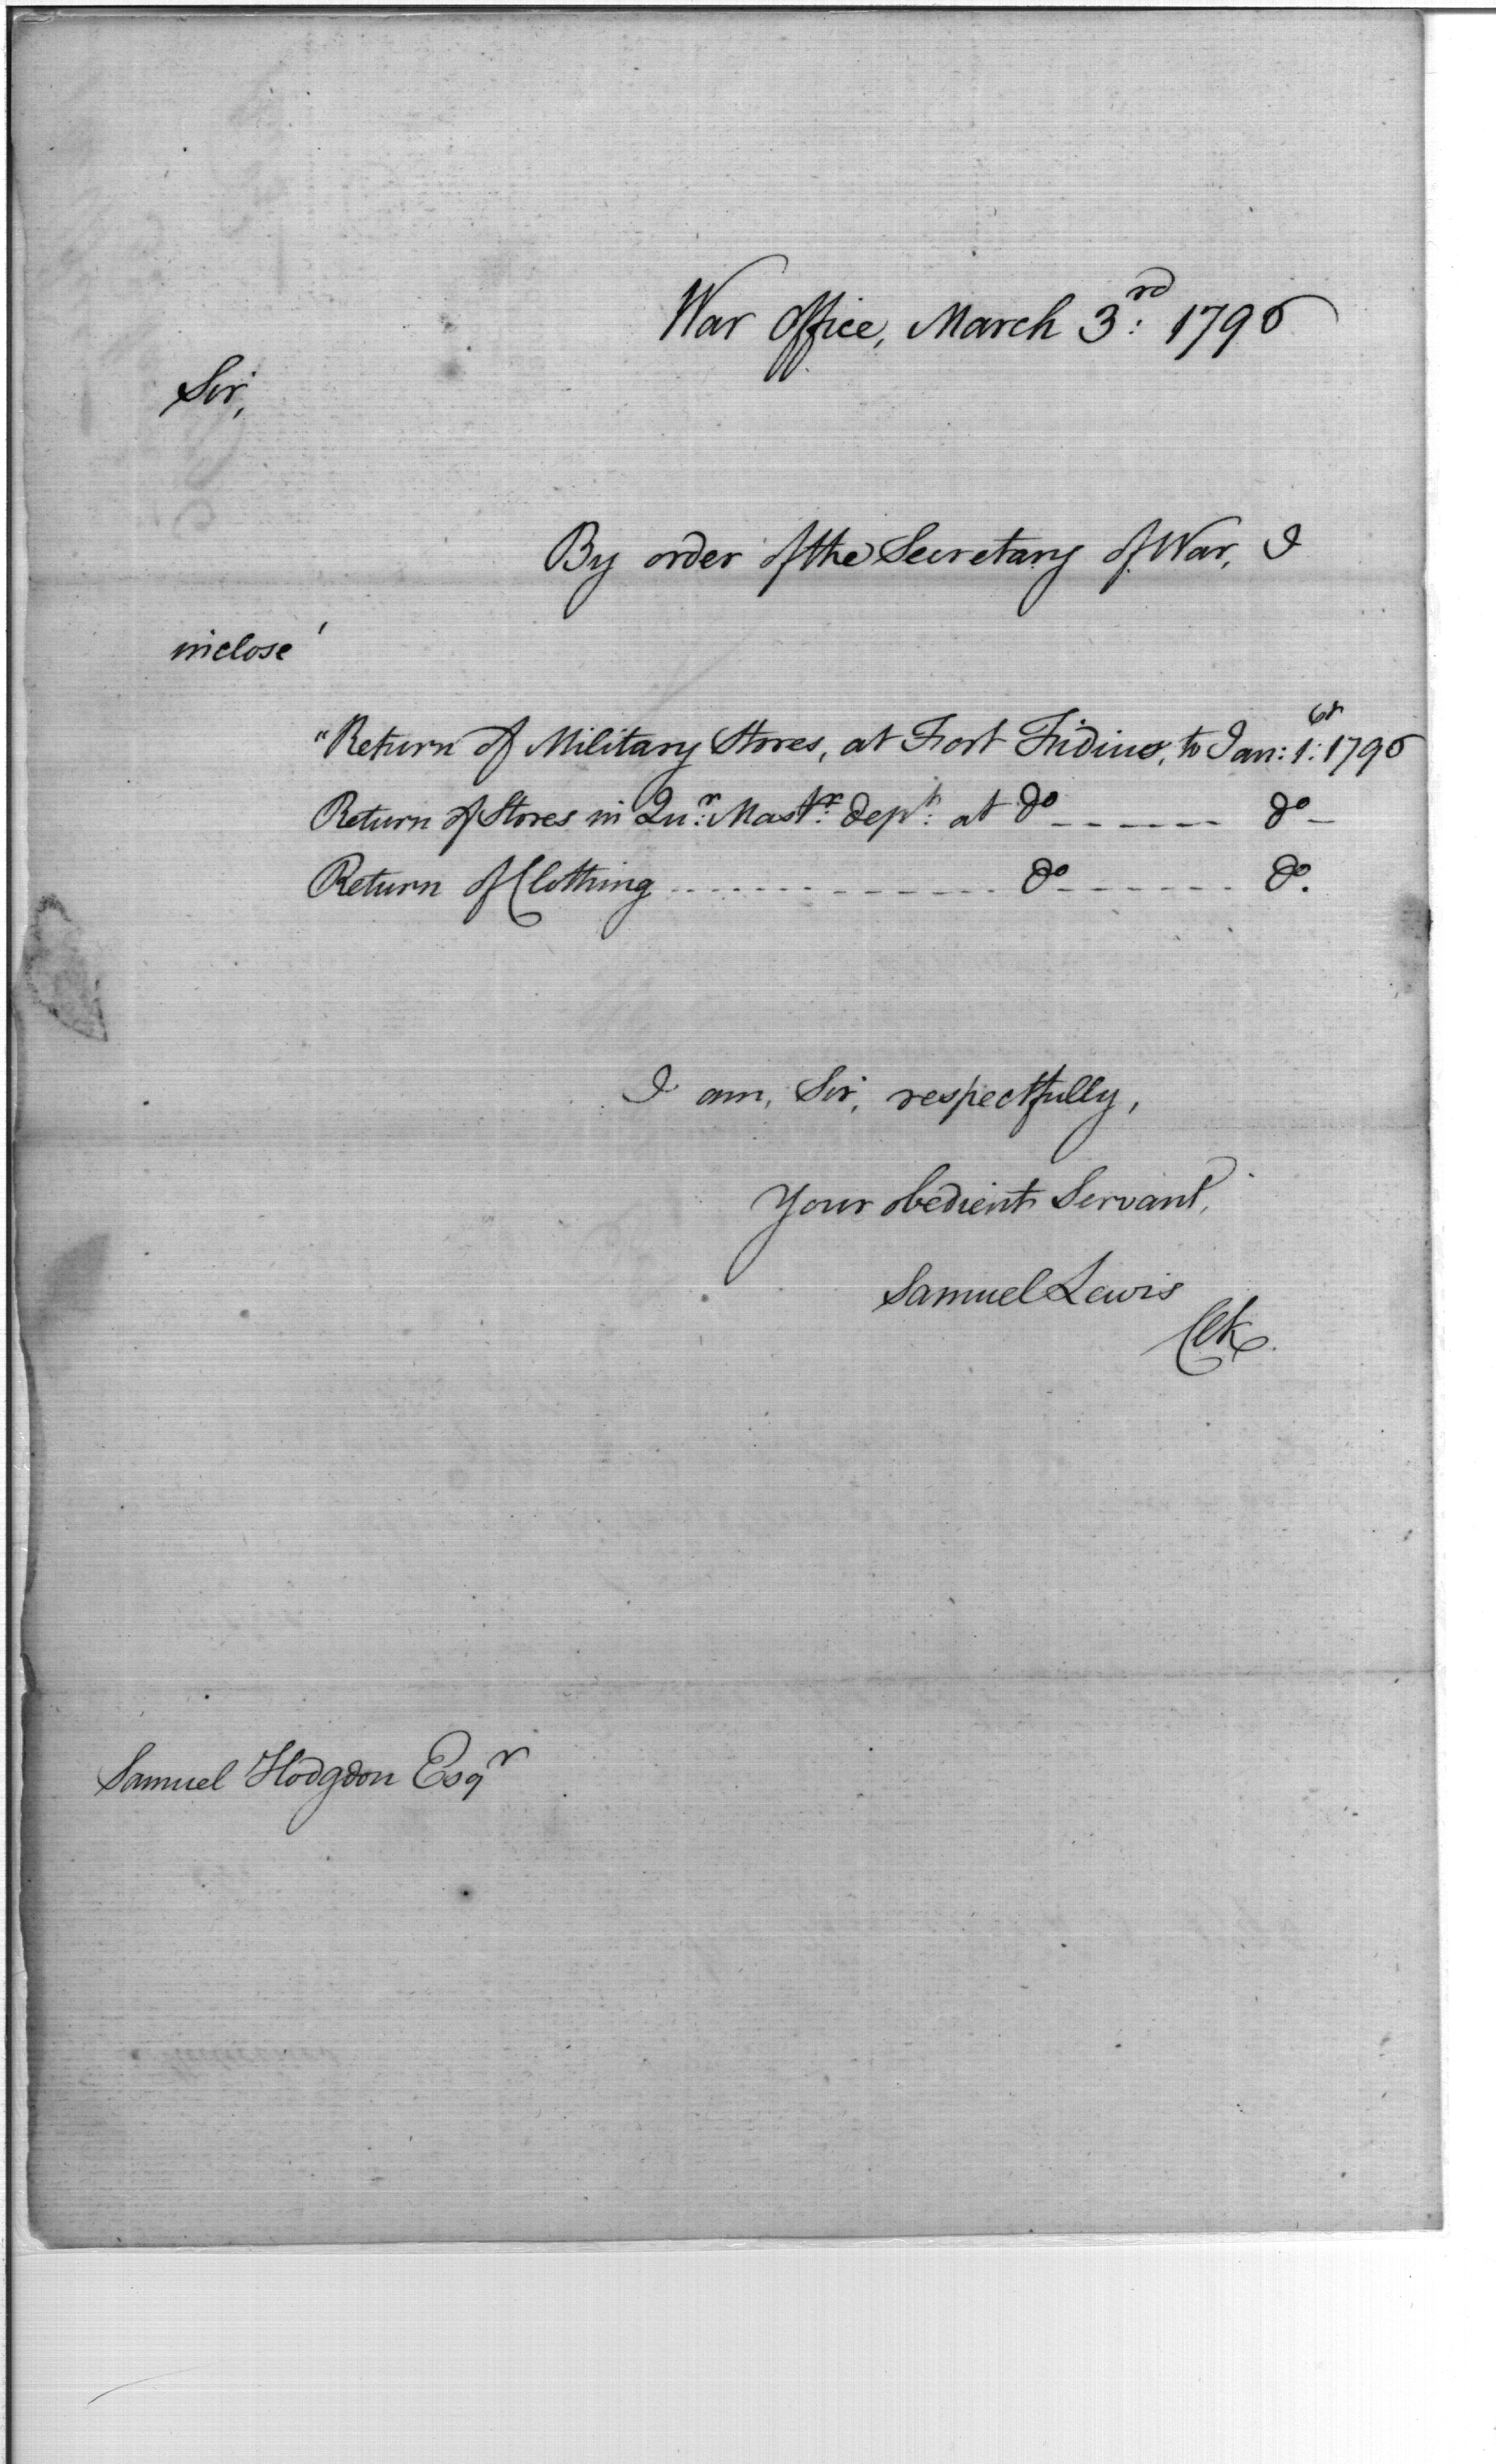 War Office, March 3:rd 1796
Sir,
By order of the Secretary of War, I
inclose
"Return of Military Stores, at Fort Fidius, to Jan: 1:st 1796
Return of Stores in Qu:r Mast:r dep:t at do ------ do -
Return of Clothing .............. do ------- do.
I am, Sir, respectfully,
Your obedient Servant,
Samuel Lewis
Clk.
Samuel Hodgdon Esqr